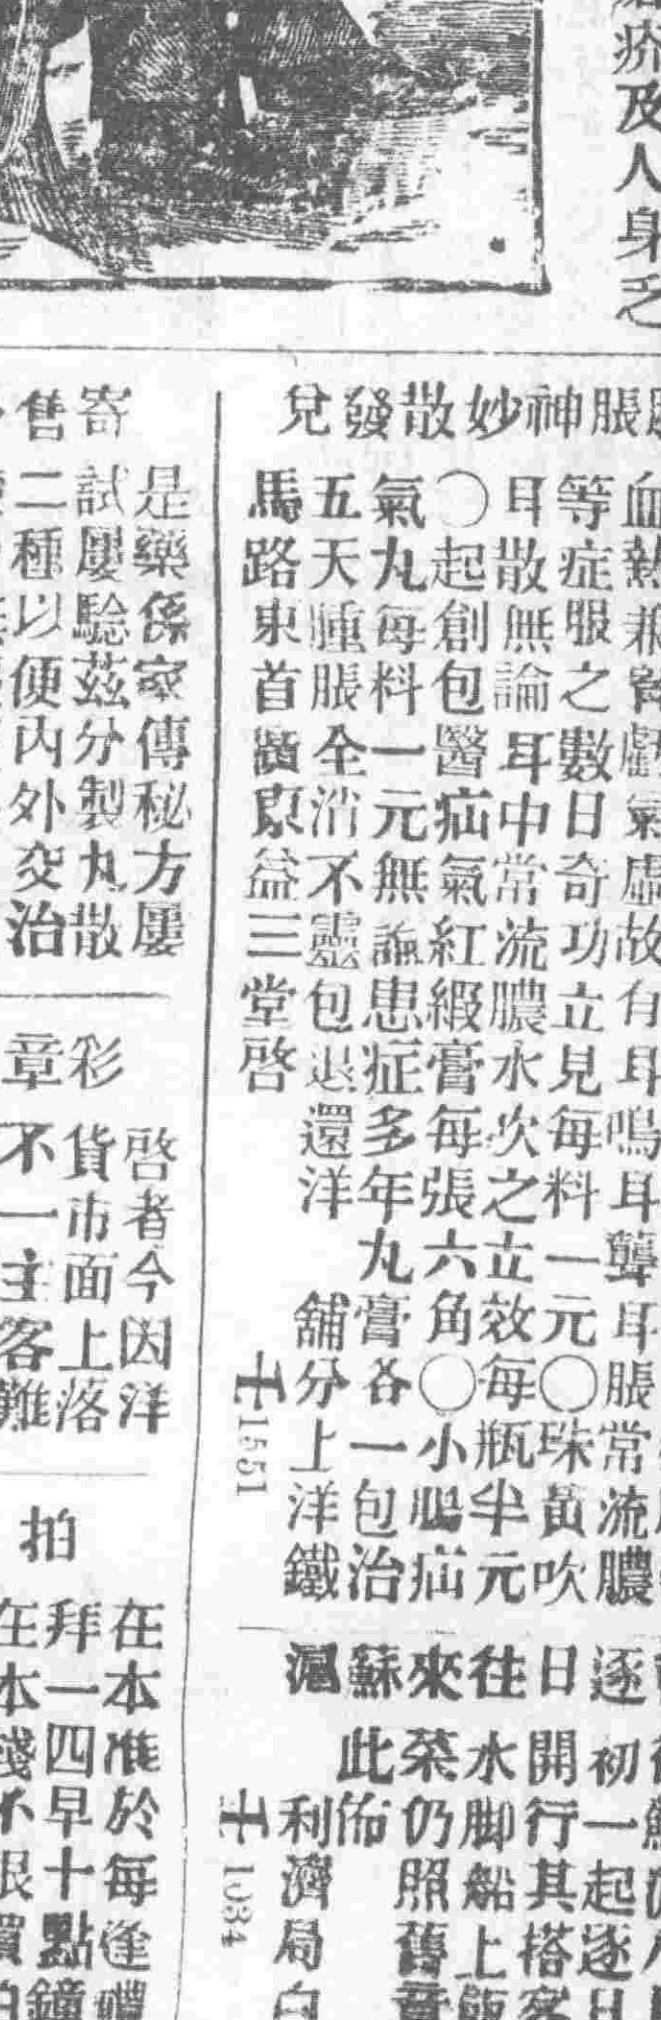 疥及人身乏
脹神妙散發兌
血熱兼腎虧氣虛故有耳鳴耳聾耳脹常流膿
等症服之數日奇功立見每料一元〇珠黃吹
耳散無論耳中常流膿水吹之立效每瓶半元
〇起創包醫疝氣紅緞膏每張六角〇小腸疝
氣丸每料一元無論患症多年丸膏各一包治
五天腫脹全消不靈包退還洋 舖分上洋鐵
馬路東首廣東益三堂啓
1551
逐日往來蘇滬
初一起逐日
開行其搭客
水脚船上飯
菜仍照舊章
此佈
利濟局白
1084
寄售
是藥係家傳秘方屢
試屢驗茲分製丸散
二種以便內外交治
彩章
啓者今因洋
貨市面上落
不一主客難
拍
在本准於每逢禮
拜一四早十點鐘
在本棧不限